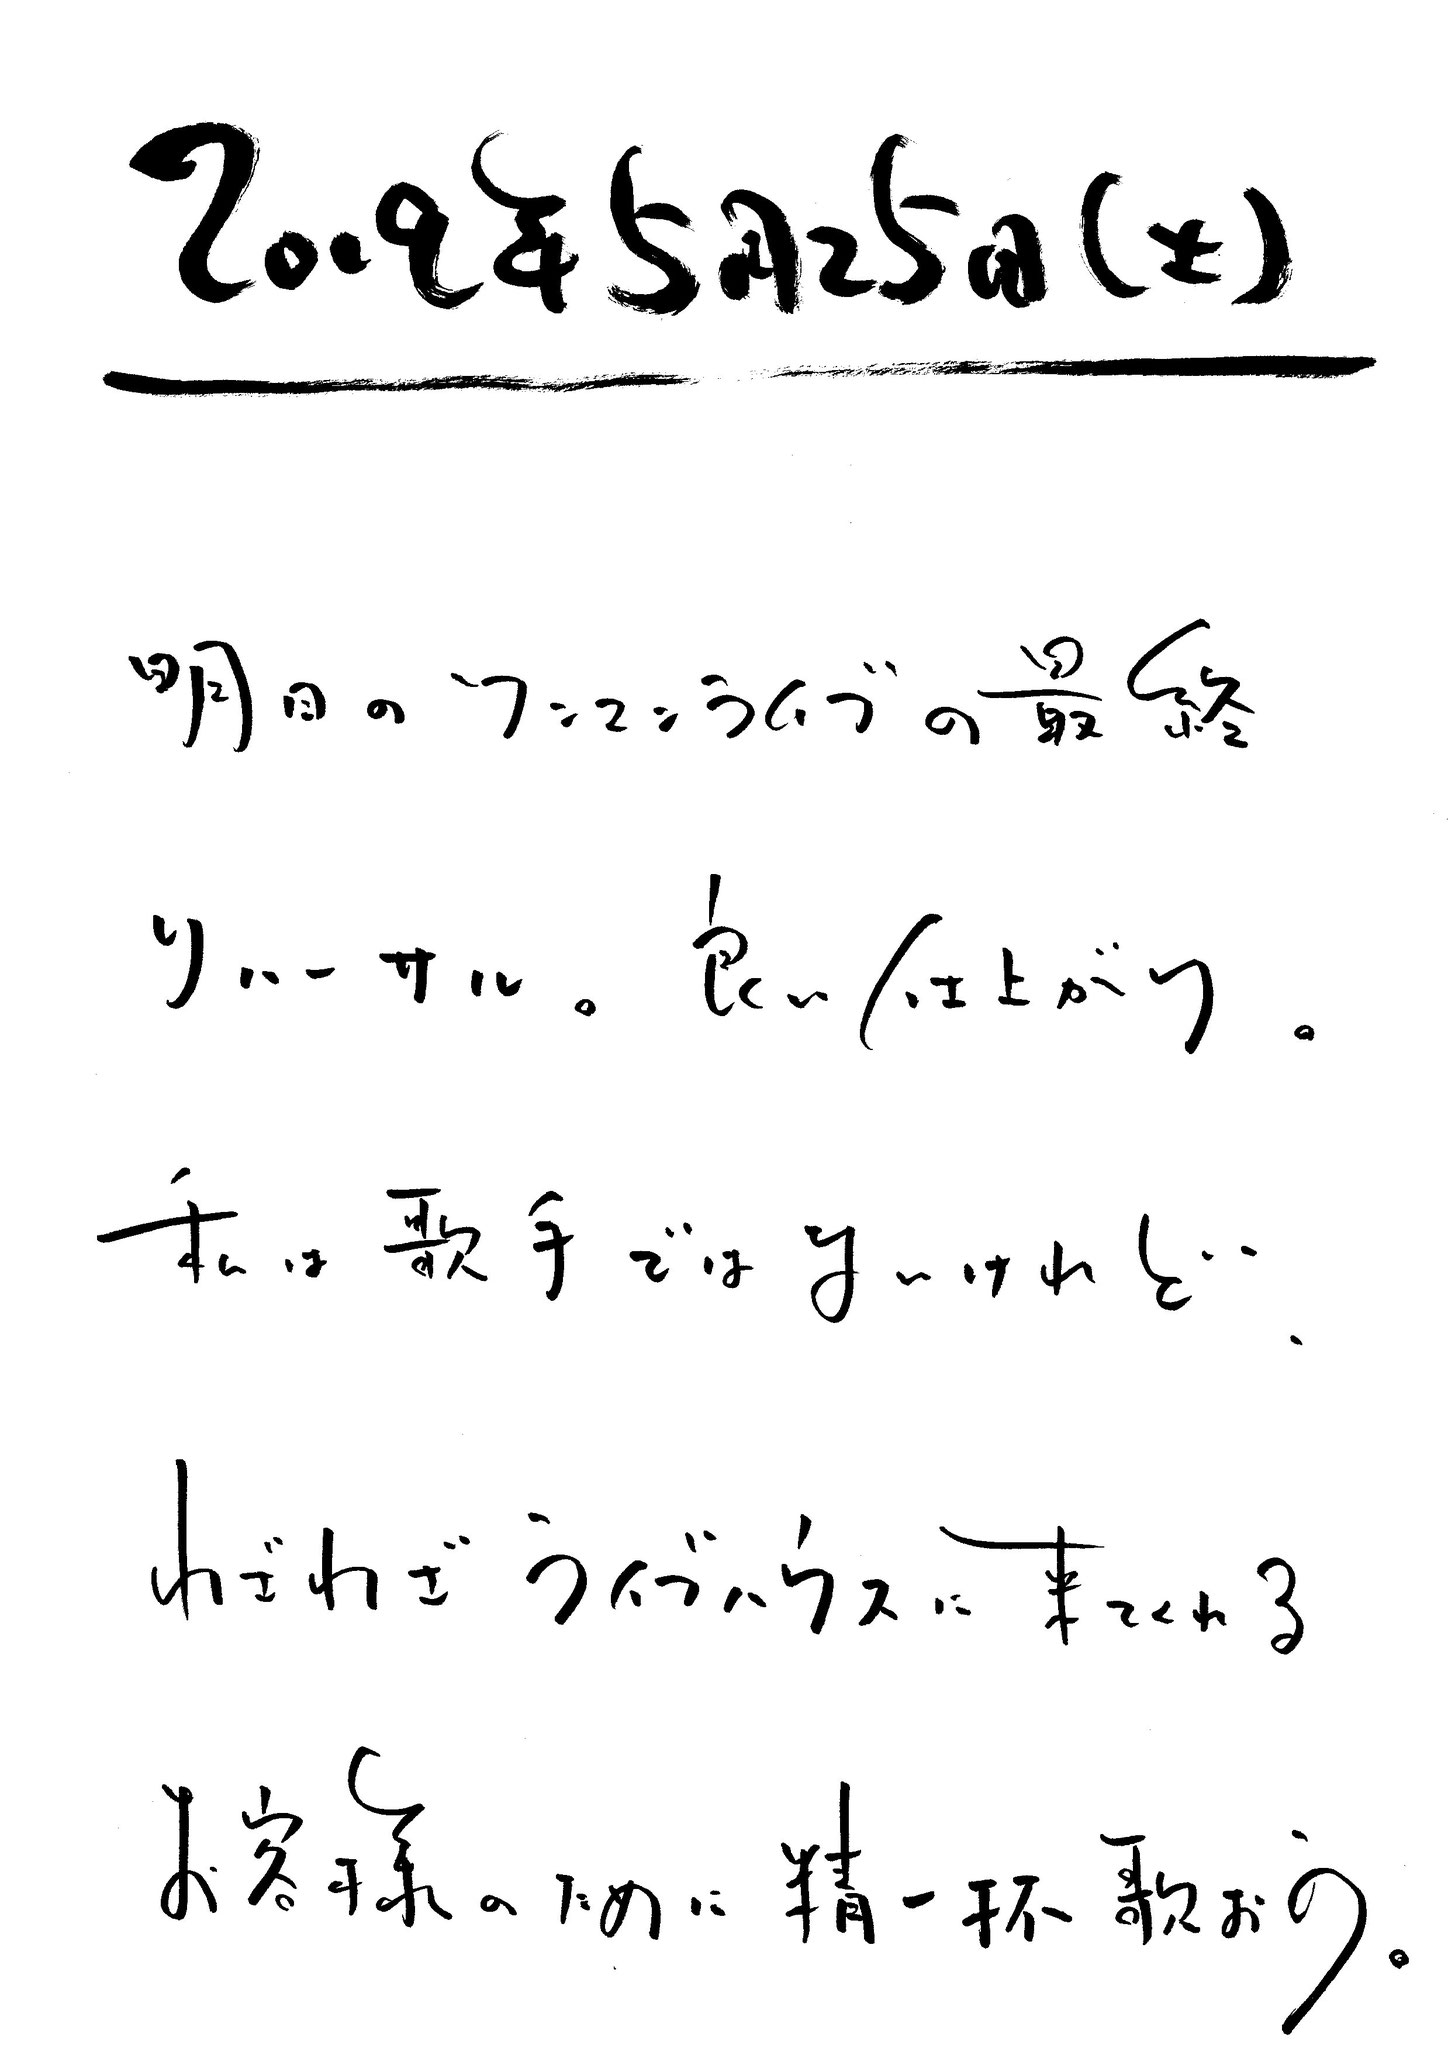 2019年5月25日(土)
明日のワンマンライブの最終
リハーサル。良い仕上がり。
私は歌手ではないけれど、
わざわざライブハウスに来てくれる
お客様のために精一杯歌おう。